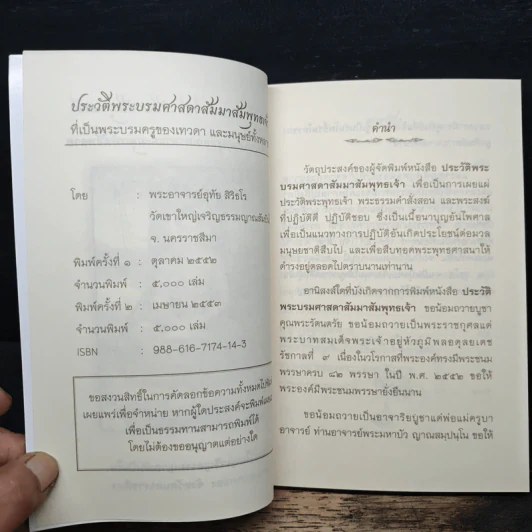 ประวัติพระบรมศาสดาสัมมาสัมพุทธเจ้า
ที่เป็นพระบรมครูของเทวดา และมนุษย์ทั้งหลาย
โดย : พระอาจารย์อุทัย สิริธโร
วัดเขาใหญ่เจริญธรรมญาณสัมปันโน
จ. นครราชสีมา
พิมพ์ครั้งที่ ๑ : ตุลาคม ๒๕๕๒
จำนวนพิมพ์ : ๕,๐๐๐ เล่ม
พิมพ์ครั้งที่ ๒ : เมษายน ๒๕๕๓
จำนวนพิมพ์ : ๕,๐๐๐ เล่ม
ISBN : 988-616-7174-14-3
ขอสงวนสิทธิ์ในการคัดลอกข้อความทั้งหมดไปพิมพ์
เผยแพร่เพื่อจำหน่าย หากผู้ใดประสงค์จะพิมพ์แจก
เพื่อเป็นธรรมทานสามารถพิมพ์ได้
โดยไม่ต้องขออนุญาตแต่อย่างใด
คำนำ
วัตถุประสงค์ของผู้จัดพิมพ์หนังสือ ประวัติพระ
บรมศาสดาสัมมาสัมพุทธเจ้า เพื่อเป็นการเผยแผ่
ประวัติพระพุทธเจ้า พระธรรมคำสั่งสอน และพระสงฆ์
ที่ปฏิบัติดี ปฏิบัติชอบ ซึ่งเป็นเนื้อนาบุญอันไพศาล
เพื่อเป็นแนวทางการปฏิบัติอันเกิดประโยชน์ต่อมวล
มนุษยชาติสืบไป และเพื่อสืบทอดพระพุทธศาสนาให้
ดำรงอยู่ตลอดไปตราบนานเท่านาน
อานิสงส์ใดที่บังเกิดจากการพิมพ์หนังสือ ประวัติ
พระบรมศาสดาสัมมาสัมพุทธเจ้า ขอน้อมถวายบูชา
คุณพระรัตนตรัย ขอน้อมถวายเป็นพระราชกุศลแด่
พระบาทสมเด็จพระเจ้าอยู่หัวภูมิพลอดุลยเดช
รัชกาลที่ ๙ เนื่องในวโรกาสที่พระองค์ทรงมีพระชนม
พรรษาครบ ๘๒ พรรษา ในปี พ.ศ. ๒๕๕๒ ขอให้
พระองค์มีพระชนมพรรษายั่งยืนนาน
ขอน้อมถวายเป็นอาจาริยบูชาแด่พ่อแม่ครูบา
อาจารย์ ท่านอาจารย์พระมหาบัว ญาณสมฺปนฺโน ขอให้